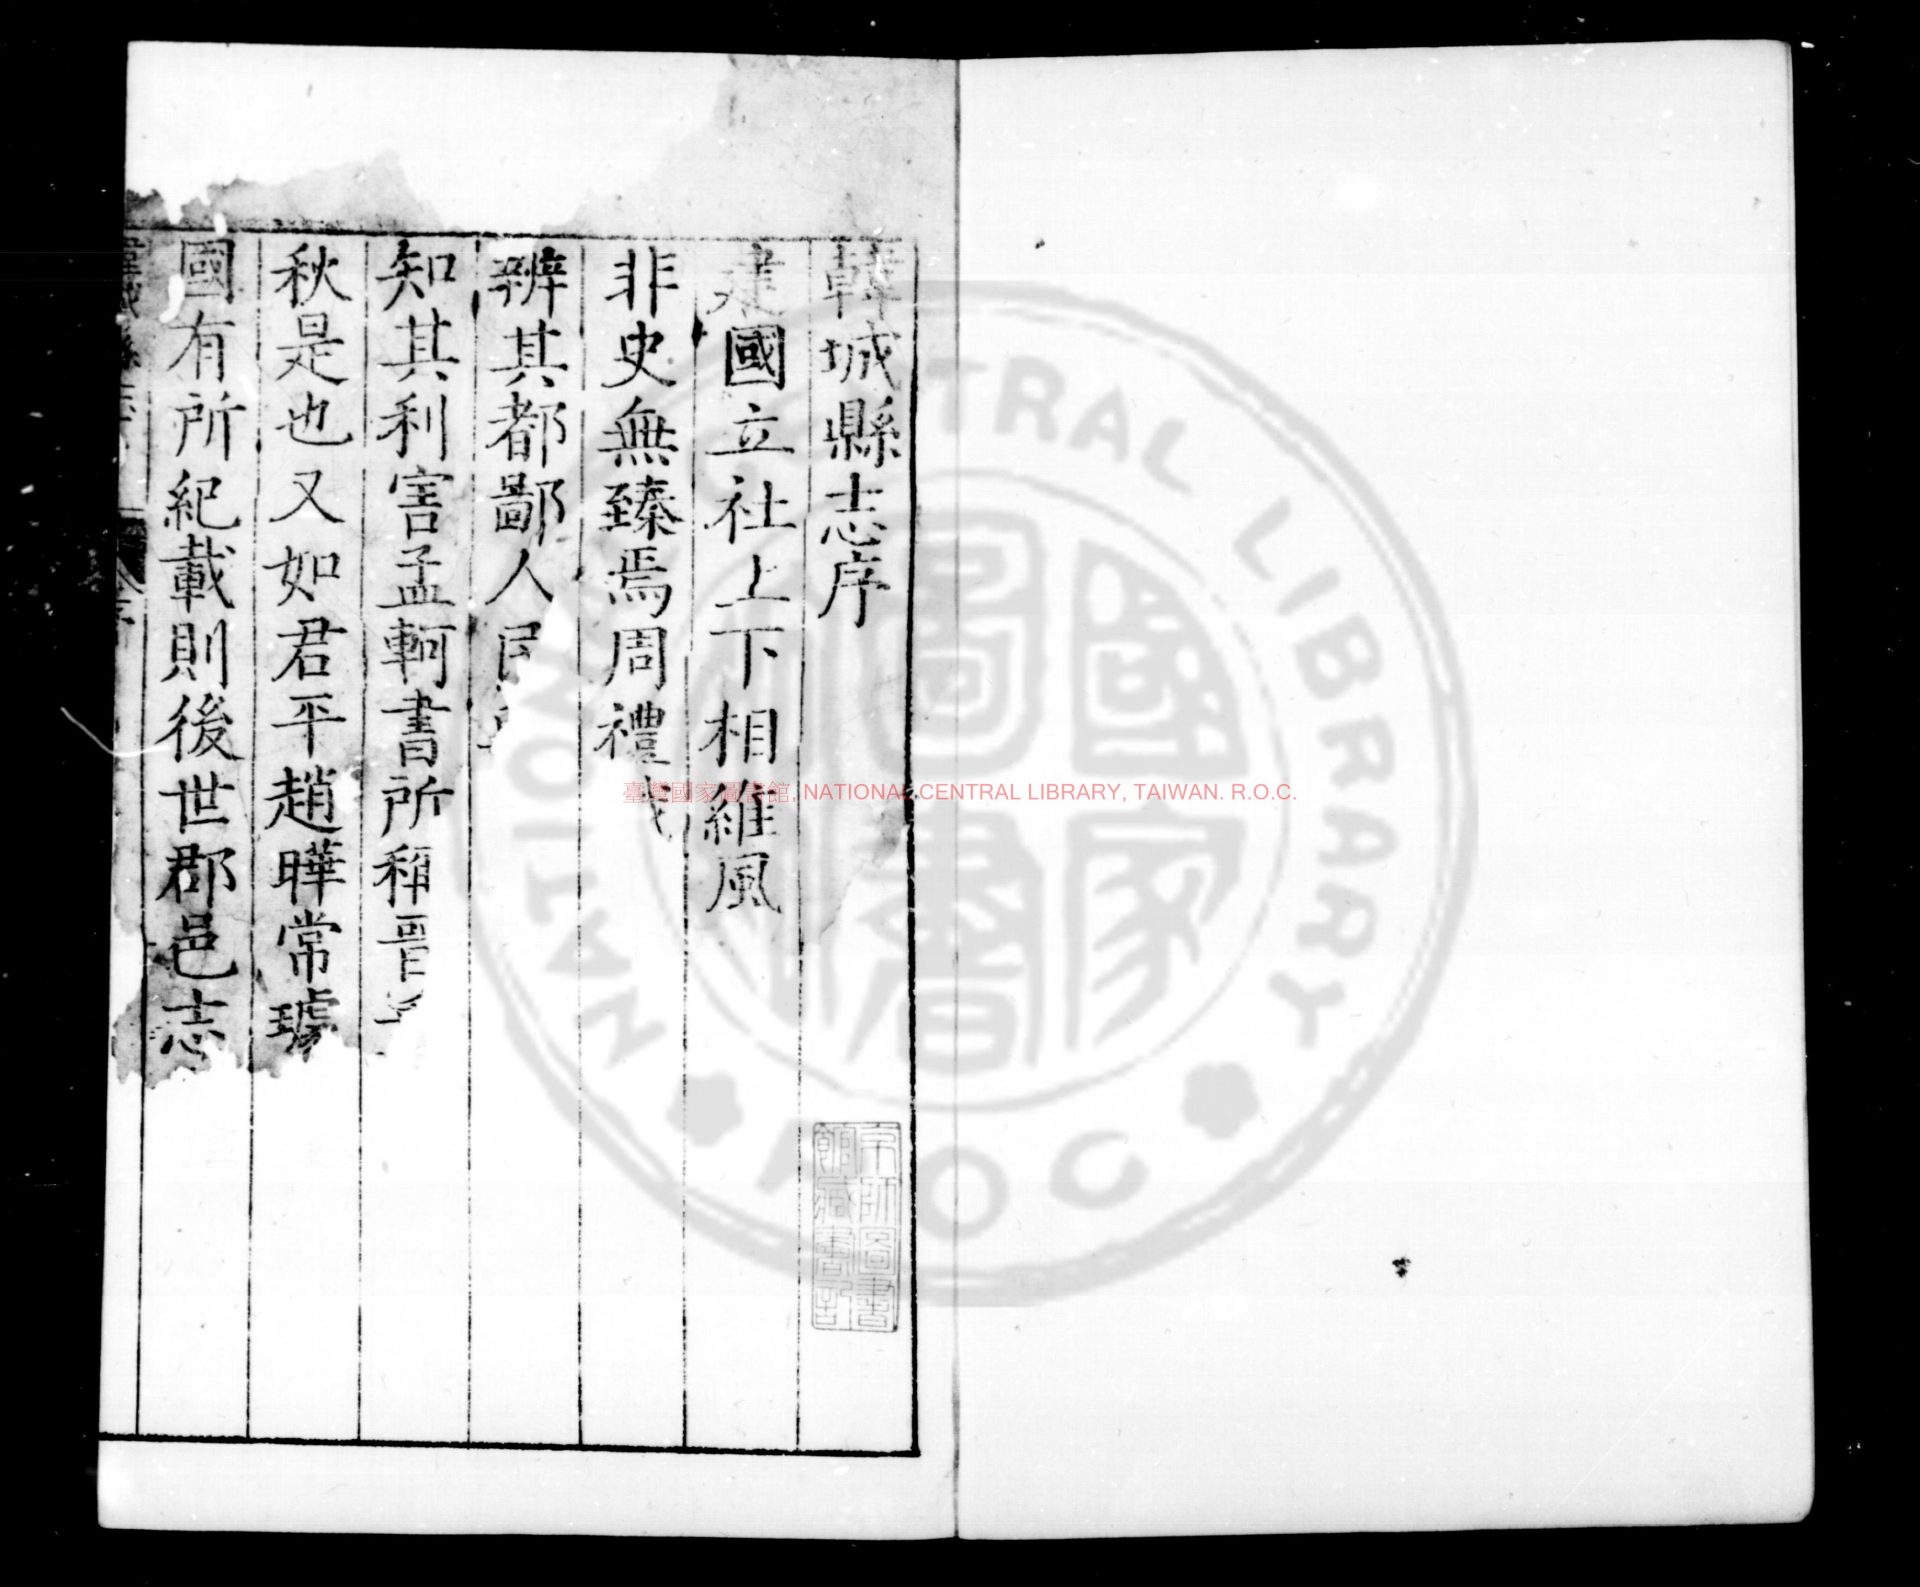 韓城縣志序
建國立社上下相維風
非史無臻焉周禮職
辨其都鄙人民
知其利害孟軻書所稱晉
秋是也又如君平趙曄常璩
國有所紀載則後世郡邑志
韓城縣志
京師圖書
館藏書記
臺灣國家圖書館, NATIONAL CENTRAL LIBRARY, TAIWAN. R.O.C.
NATIONAL CENTRAL LIBRARY
R.O.C
國家
圖書